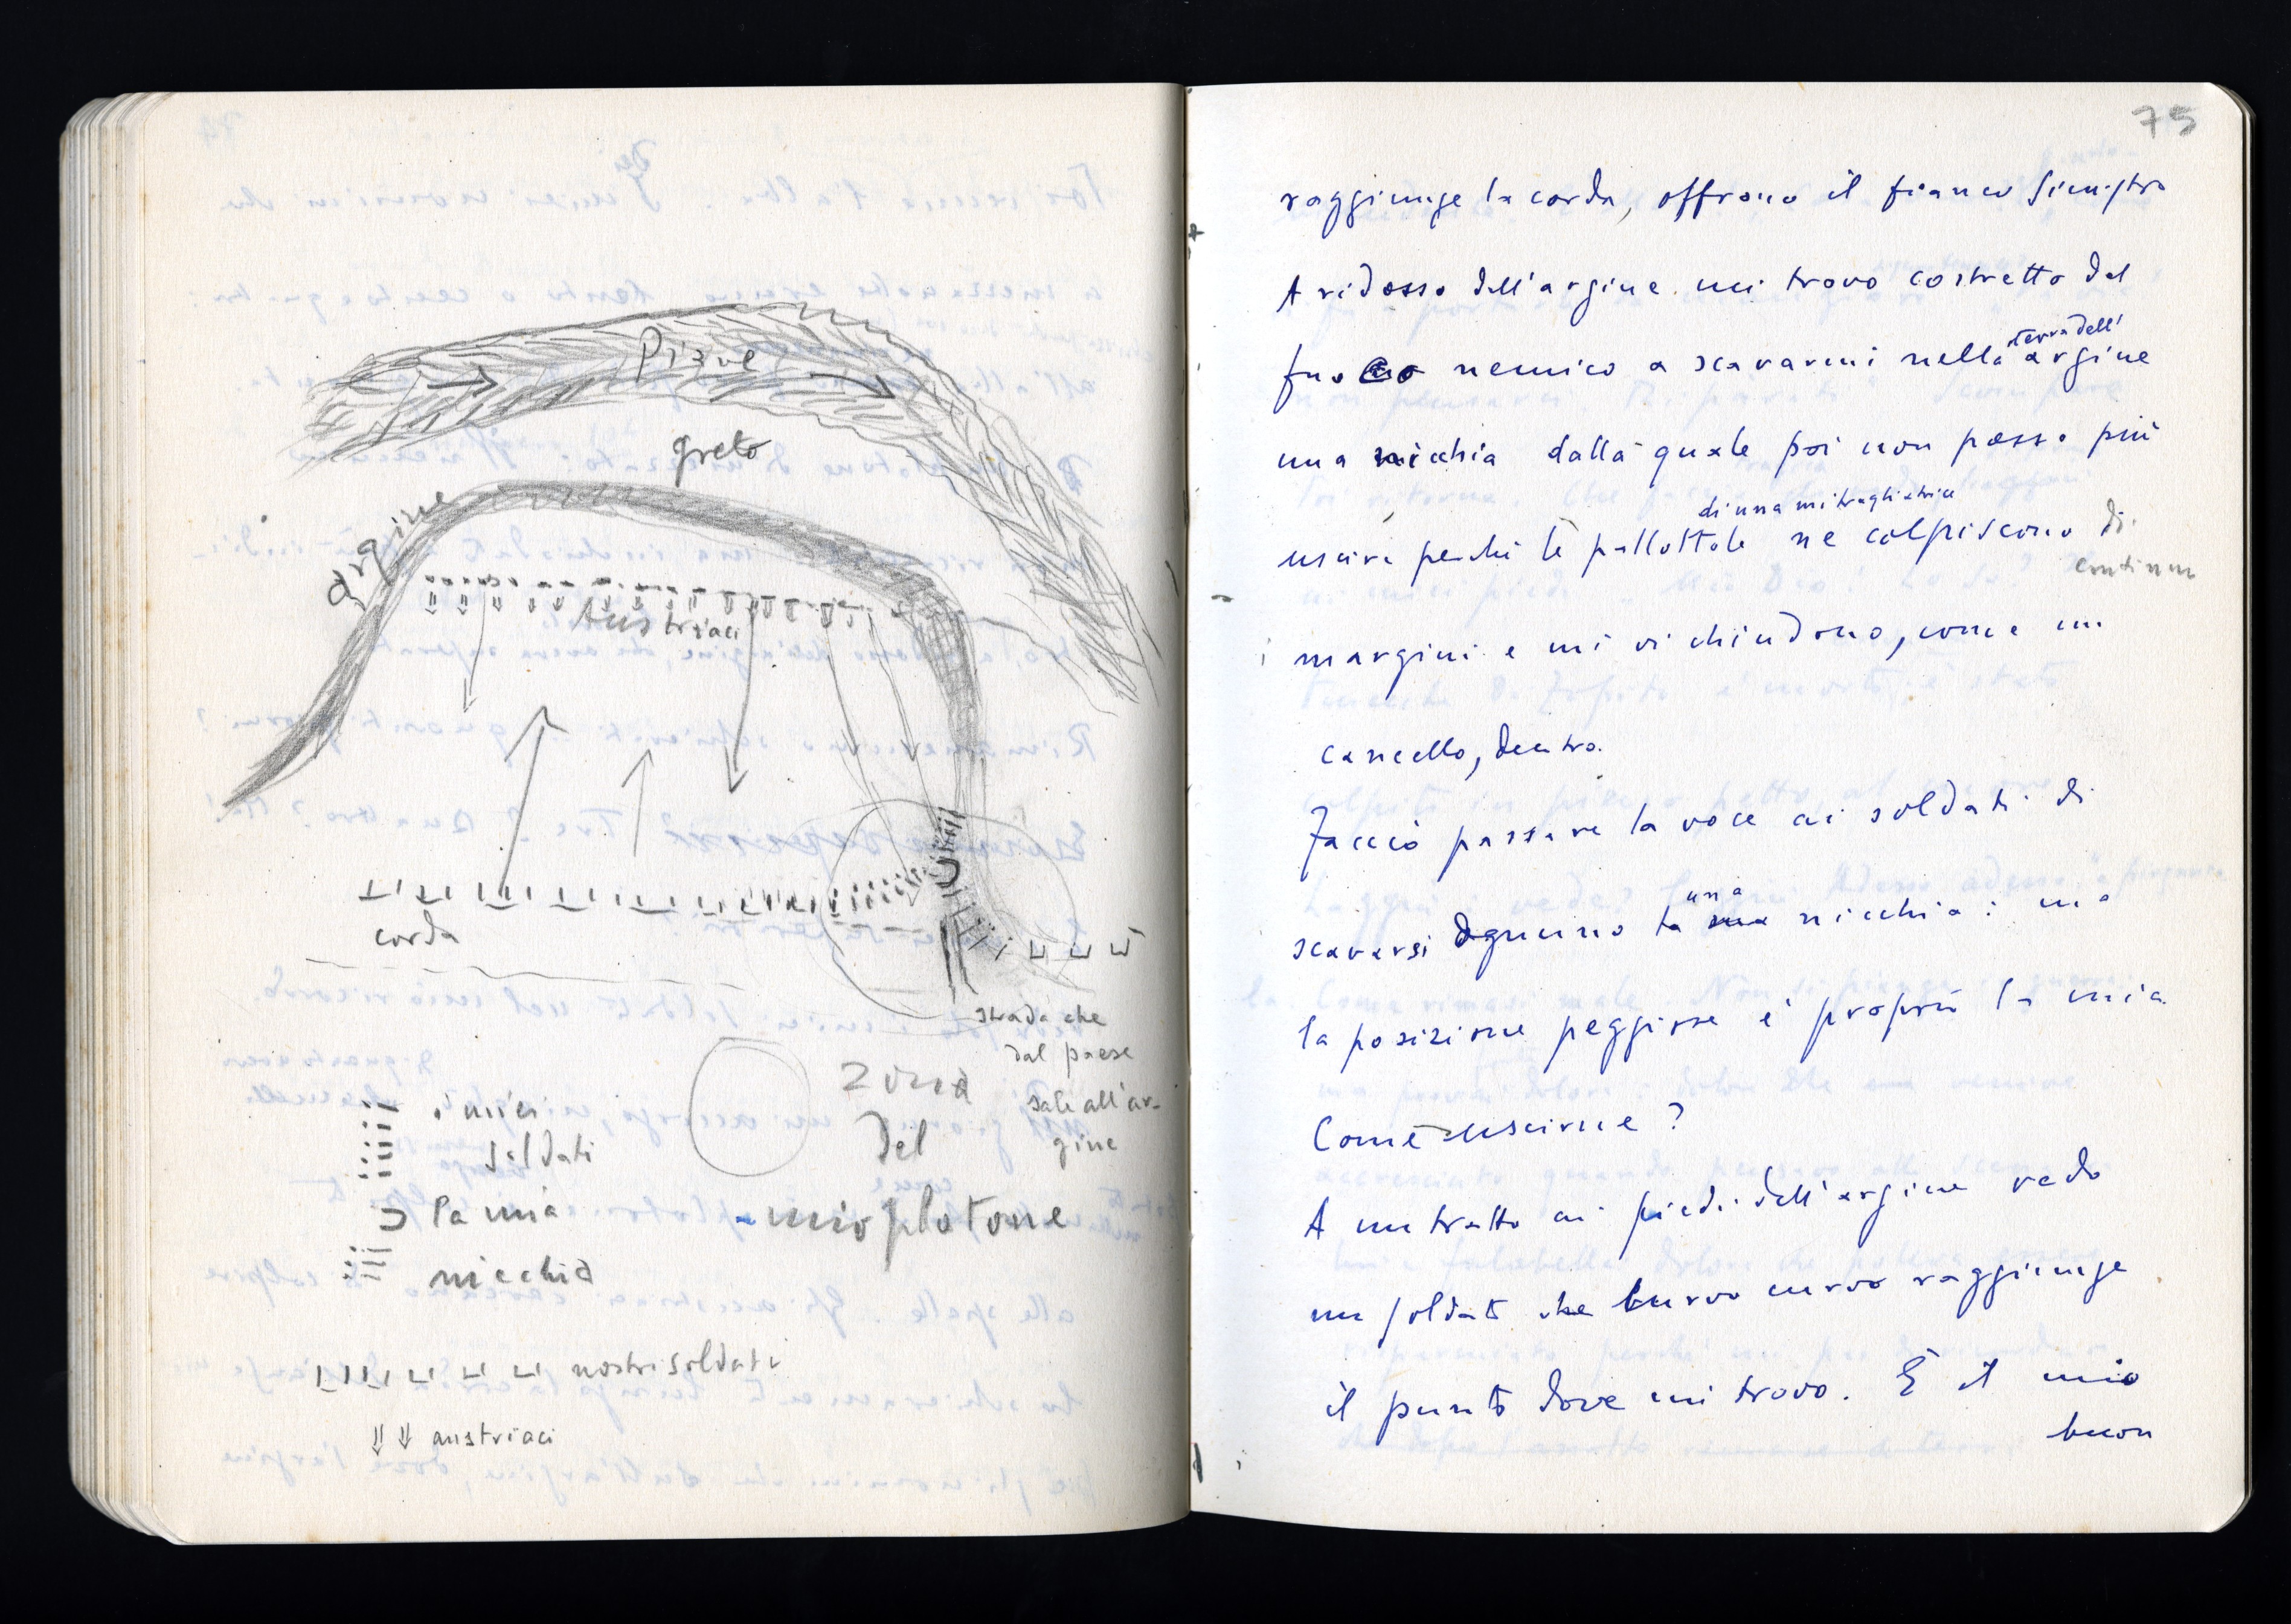 Piave
greto
argine
Austriaci
corda
strada che
dal paese
sale all'ar-
gine
i miei
soldati
la mia
nicchia
zona
del
mio plotone
nostri soldati
austriaci
75
raggiunge la corda, offrono il fianco sinistro
A ridosso dell'argine mi trovo costretto dal
fuoco nemico a scavarmi nella terra dell'argine
una nicchia dalla quale poi non posso più
uscire perché le pallottole di una mitragliatrice ne colpiscono di continuo
margini e mi vi chiudono, come un
cancello, dentro.
Faccio passare la voce ai soldati di
scavarsi ognuno la una nicchia: ma
la posizione peggiore è proprio la mia.
Come uscirne?
A un tratto ai piedi dell'argine vedo
un soldato che curvo curvo raggiunge
il punto dove mi trovo. È il mio
buon